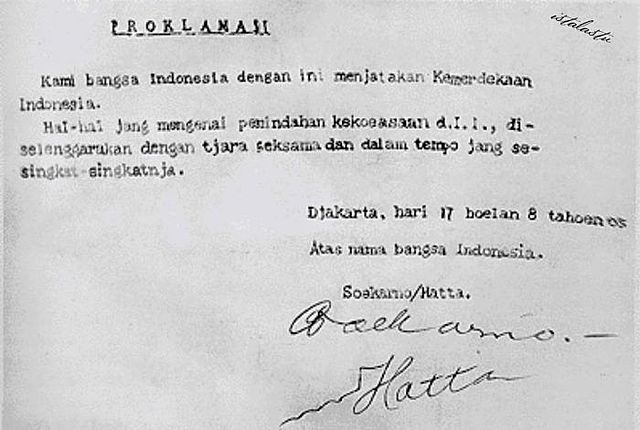 istalastu
PROKLAMASI
Kami bangsa Indonesia dengan ini menjatakan Kemerdekaan
Indonesia.
Hal-hal jang mengenai pemindahan kekoeasaan d.l.l., di-
selenggarakan dengan tjara seksama dan dalam tempo jang se-
singkat-singkatnja.
Djakarta, hari 17 boelan 8 tahoen 05
Atas nama bangsa Indonesia.
Soekarno/Hatta.
Soekarno.—
Hatta